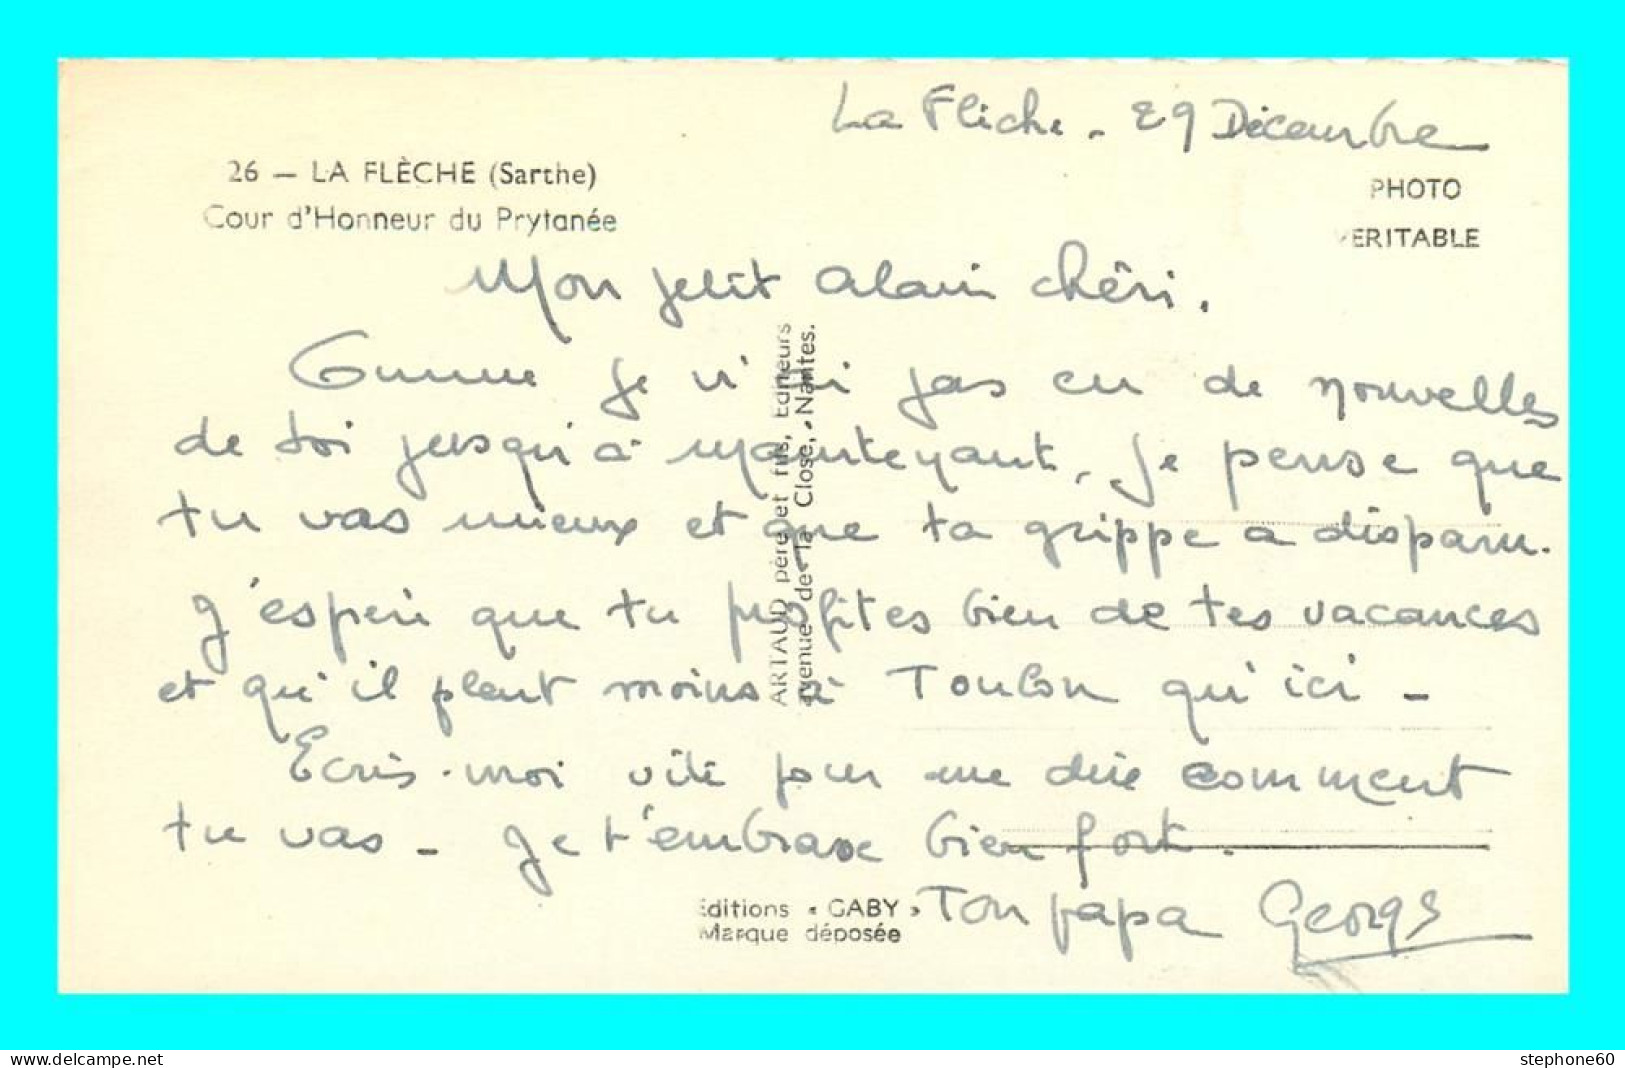 La Flèche - 29 Décembre
26 — LA FLÈCHE (Sarthe)
Cour d'Honneur du Prytanée
PHOTO
VERITABLE
Mon petit Alain chéri.
Comme je n'ai pas eu de nouvelles
de toi jusqu'à maintenant, je pense que
tu vas mieux et que ta grippe a disparu.
J'espère que tu profites bien de tes vacances
et qu'il pleut moins à Toulon qu'ici -
Ecris-moi vite pour me dire comment
tu vas - Je t'embrasse bien fort.
Ton papa Georges
ARTAUD père et fils, Editeurs
avenue de la Close, Nantes.
Editions « GABY »
Marque déposée
www.delcampe.net
stephone60